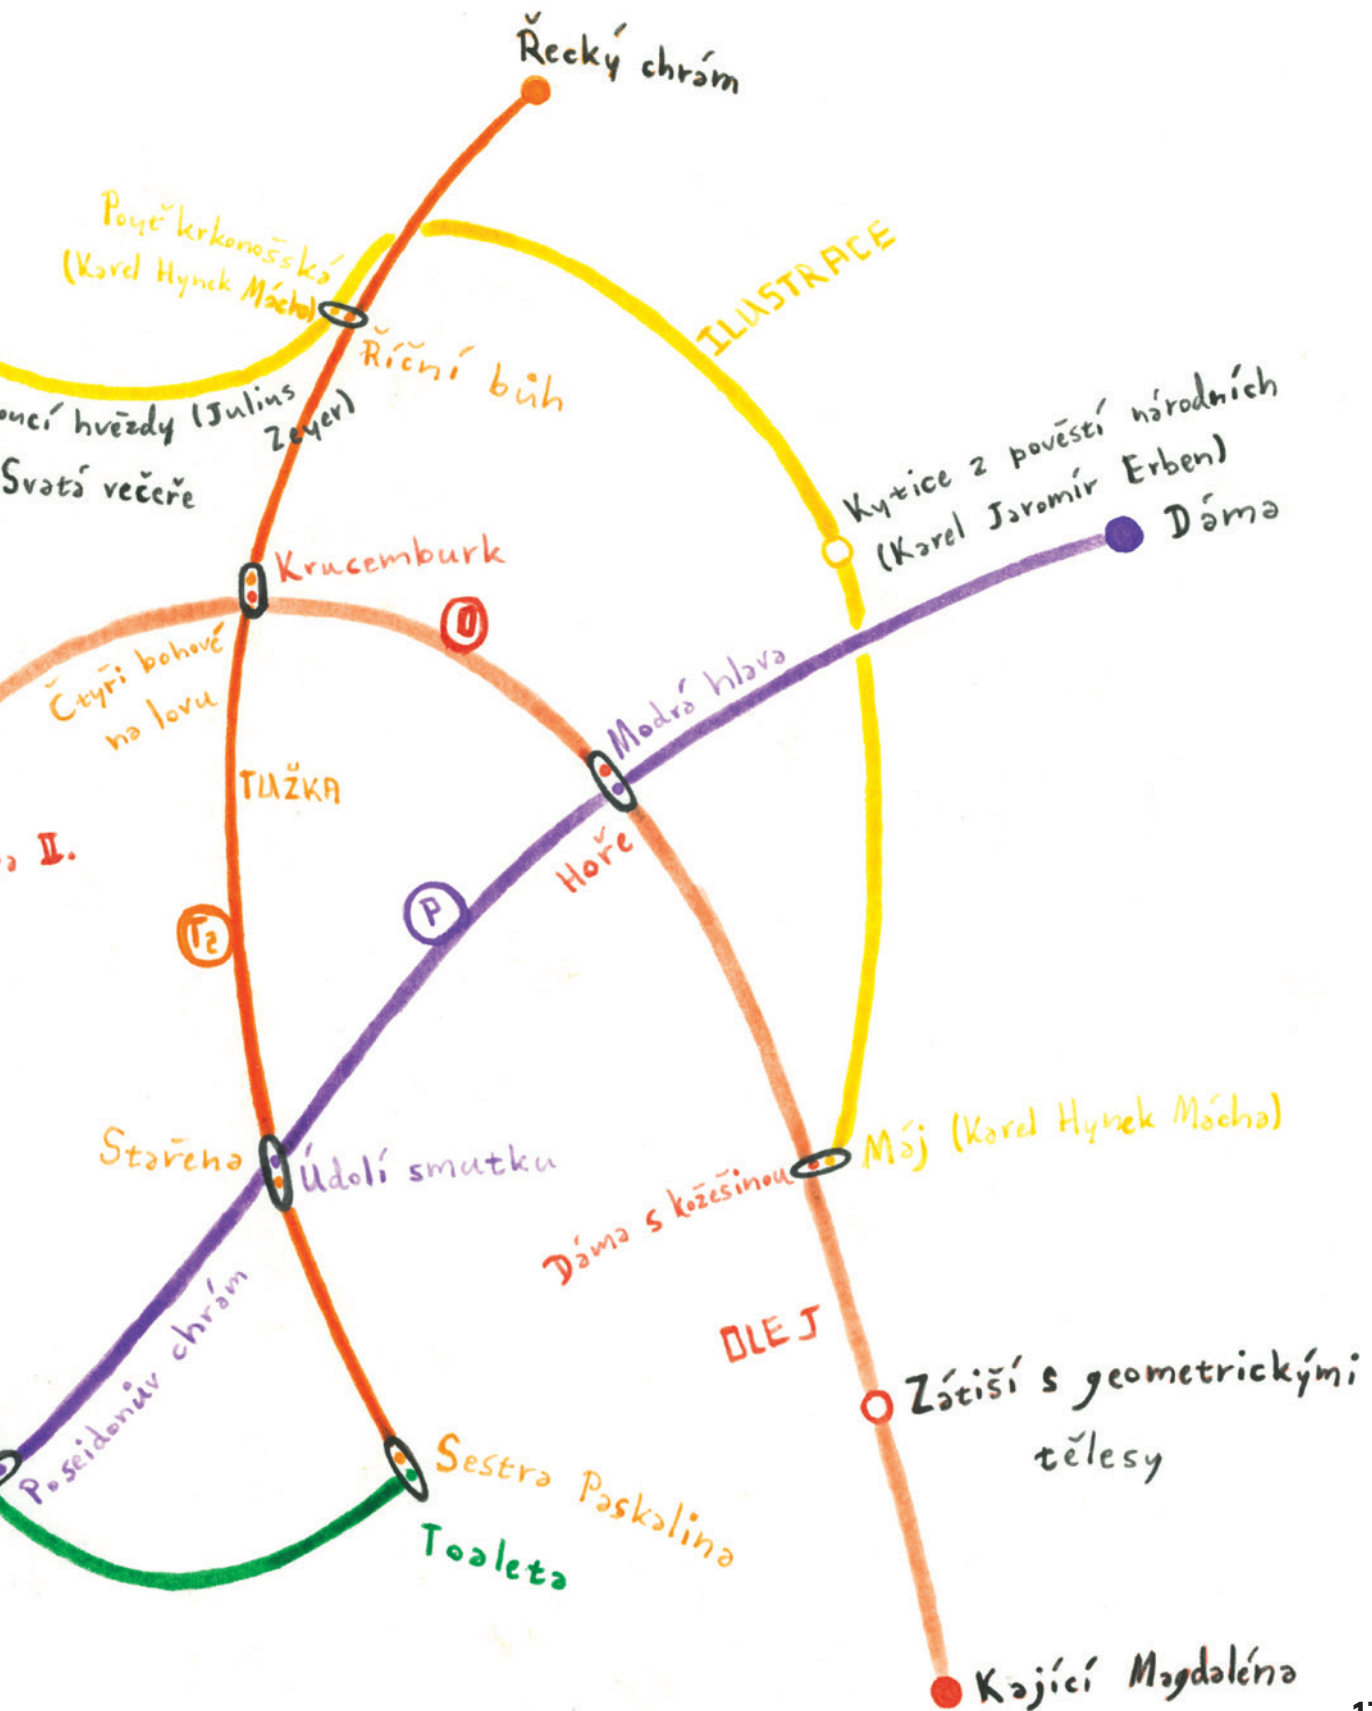 Řecký chrám
Pouť krkonošská
(Karel Hynek Mácha)
ILUSTRACE
Říční bůh
hvězdy (Julius
Zeyer)
Svatá večeře
Kytice z pověstí národních
(Karel Jaromír Erben)
Dáma
Krucemburk
O
Čtyři bohové
na lovu
Modrá hlava
TUŽKA
II.
Hoře
P
T2
Stařena
Údolí smutku
Máj (Karel Hynek Mácha)
Dáma s kožešinou
Poseidonův chrám
OLEJ
Zátiší s geometrickými
tělesy
Sestra Paskalina
Toaleta
Kající Magdaléna